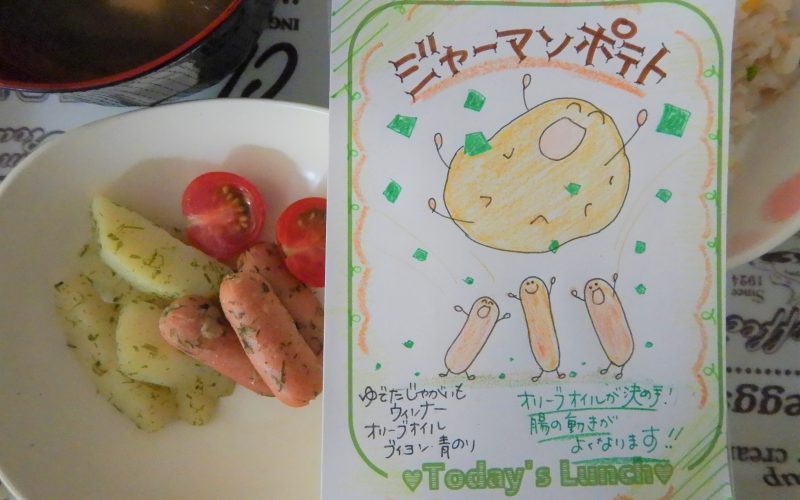 ジャーマンポテト
ゆでたじゃがいも
ウィンナー
オリーブオイル
ブイヨン・青のり
オリーブオイルが決め手!
腸の動きが
よくなります!!
♥Today's Lunch♥
ING
Since
1924
egg
cream
up